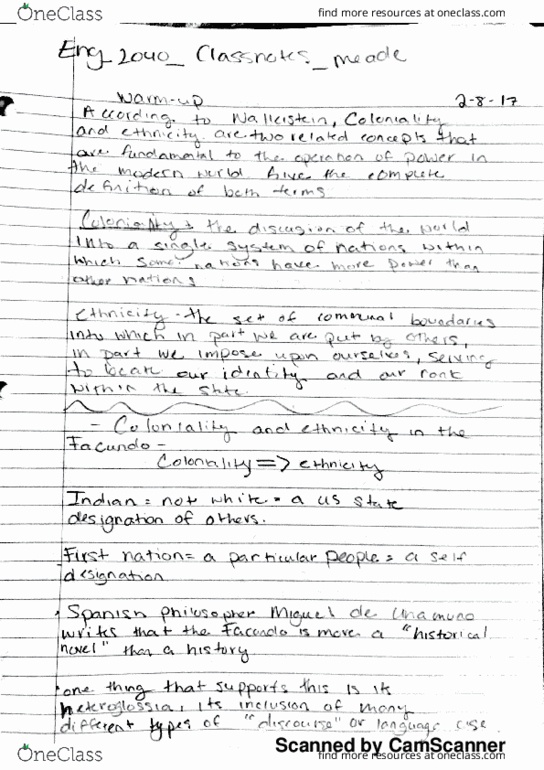 OneClass
find more resources at oneclass.com
Eng_2040_ Classnotes_meade
Warm-up
2-8-17
According to Wallerstein, Coloniality
and ethnicity are two related concepts that
are fundamental to the operation of power in
the modern world. Give the complete
definition of both terms
Coloniality: the discusion of the world
into a single system of nations within
which some nations have more power than
other nations
Ethnicity - the set of communal boundaries
into which in part we are put by others,
in part we impose upon ourselves, serving
to locate our identity and our rank
within the state.
- Coloniality and ethnicity in the
Facundo -
Coloniality => ethnicity
Indian = not white = a US state
designation of others.
First nation = a particular people = a self
designation
Spanish philosopher Miguel de Unamuno
writes that the Facundo is more a "historical
novel" than a history
one thing that supports this is its
heteroglossia, its inclusion of many
different types of "discourse" or language use
Scanned by CamScanner
OneClass
find more resources at oneclass.com